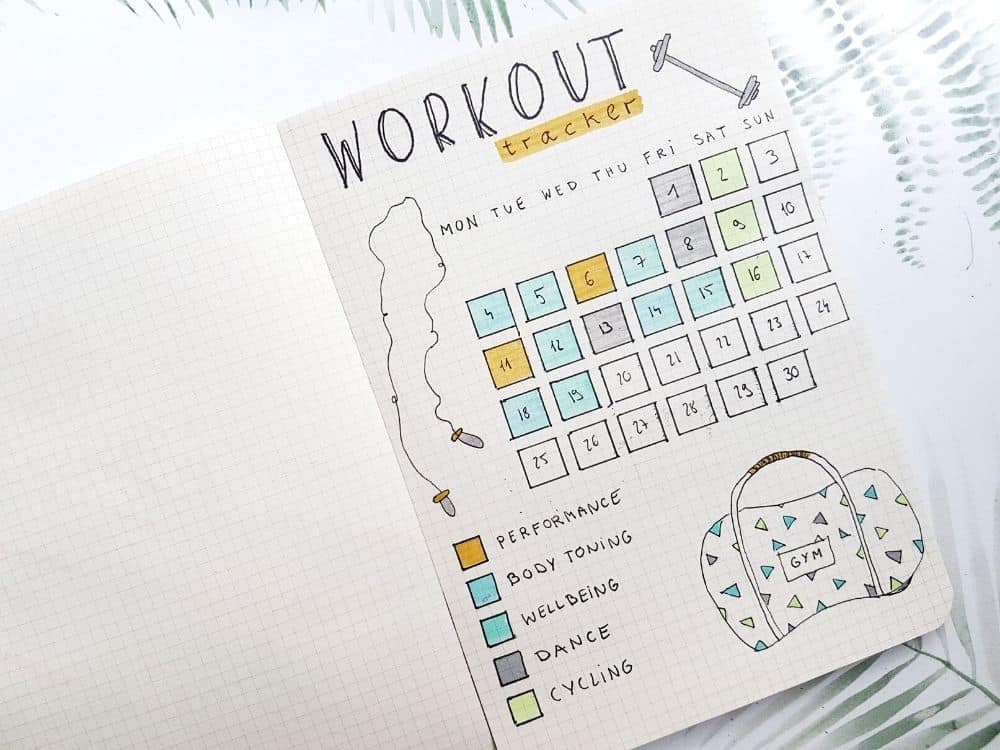 WORKOUT
tracker
MON TUE WED THU FRi SAT SUN
1 2 3
4 5 6 7 8 9 10
11 12 13 14 15 16 17
18 19 20 21 22 23 24
25 26 27 28 29 30
PERFORMANCE
BODY TONING
WELLBEING
DANCE
CYCLING
GYM